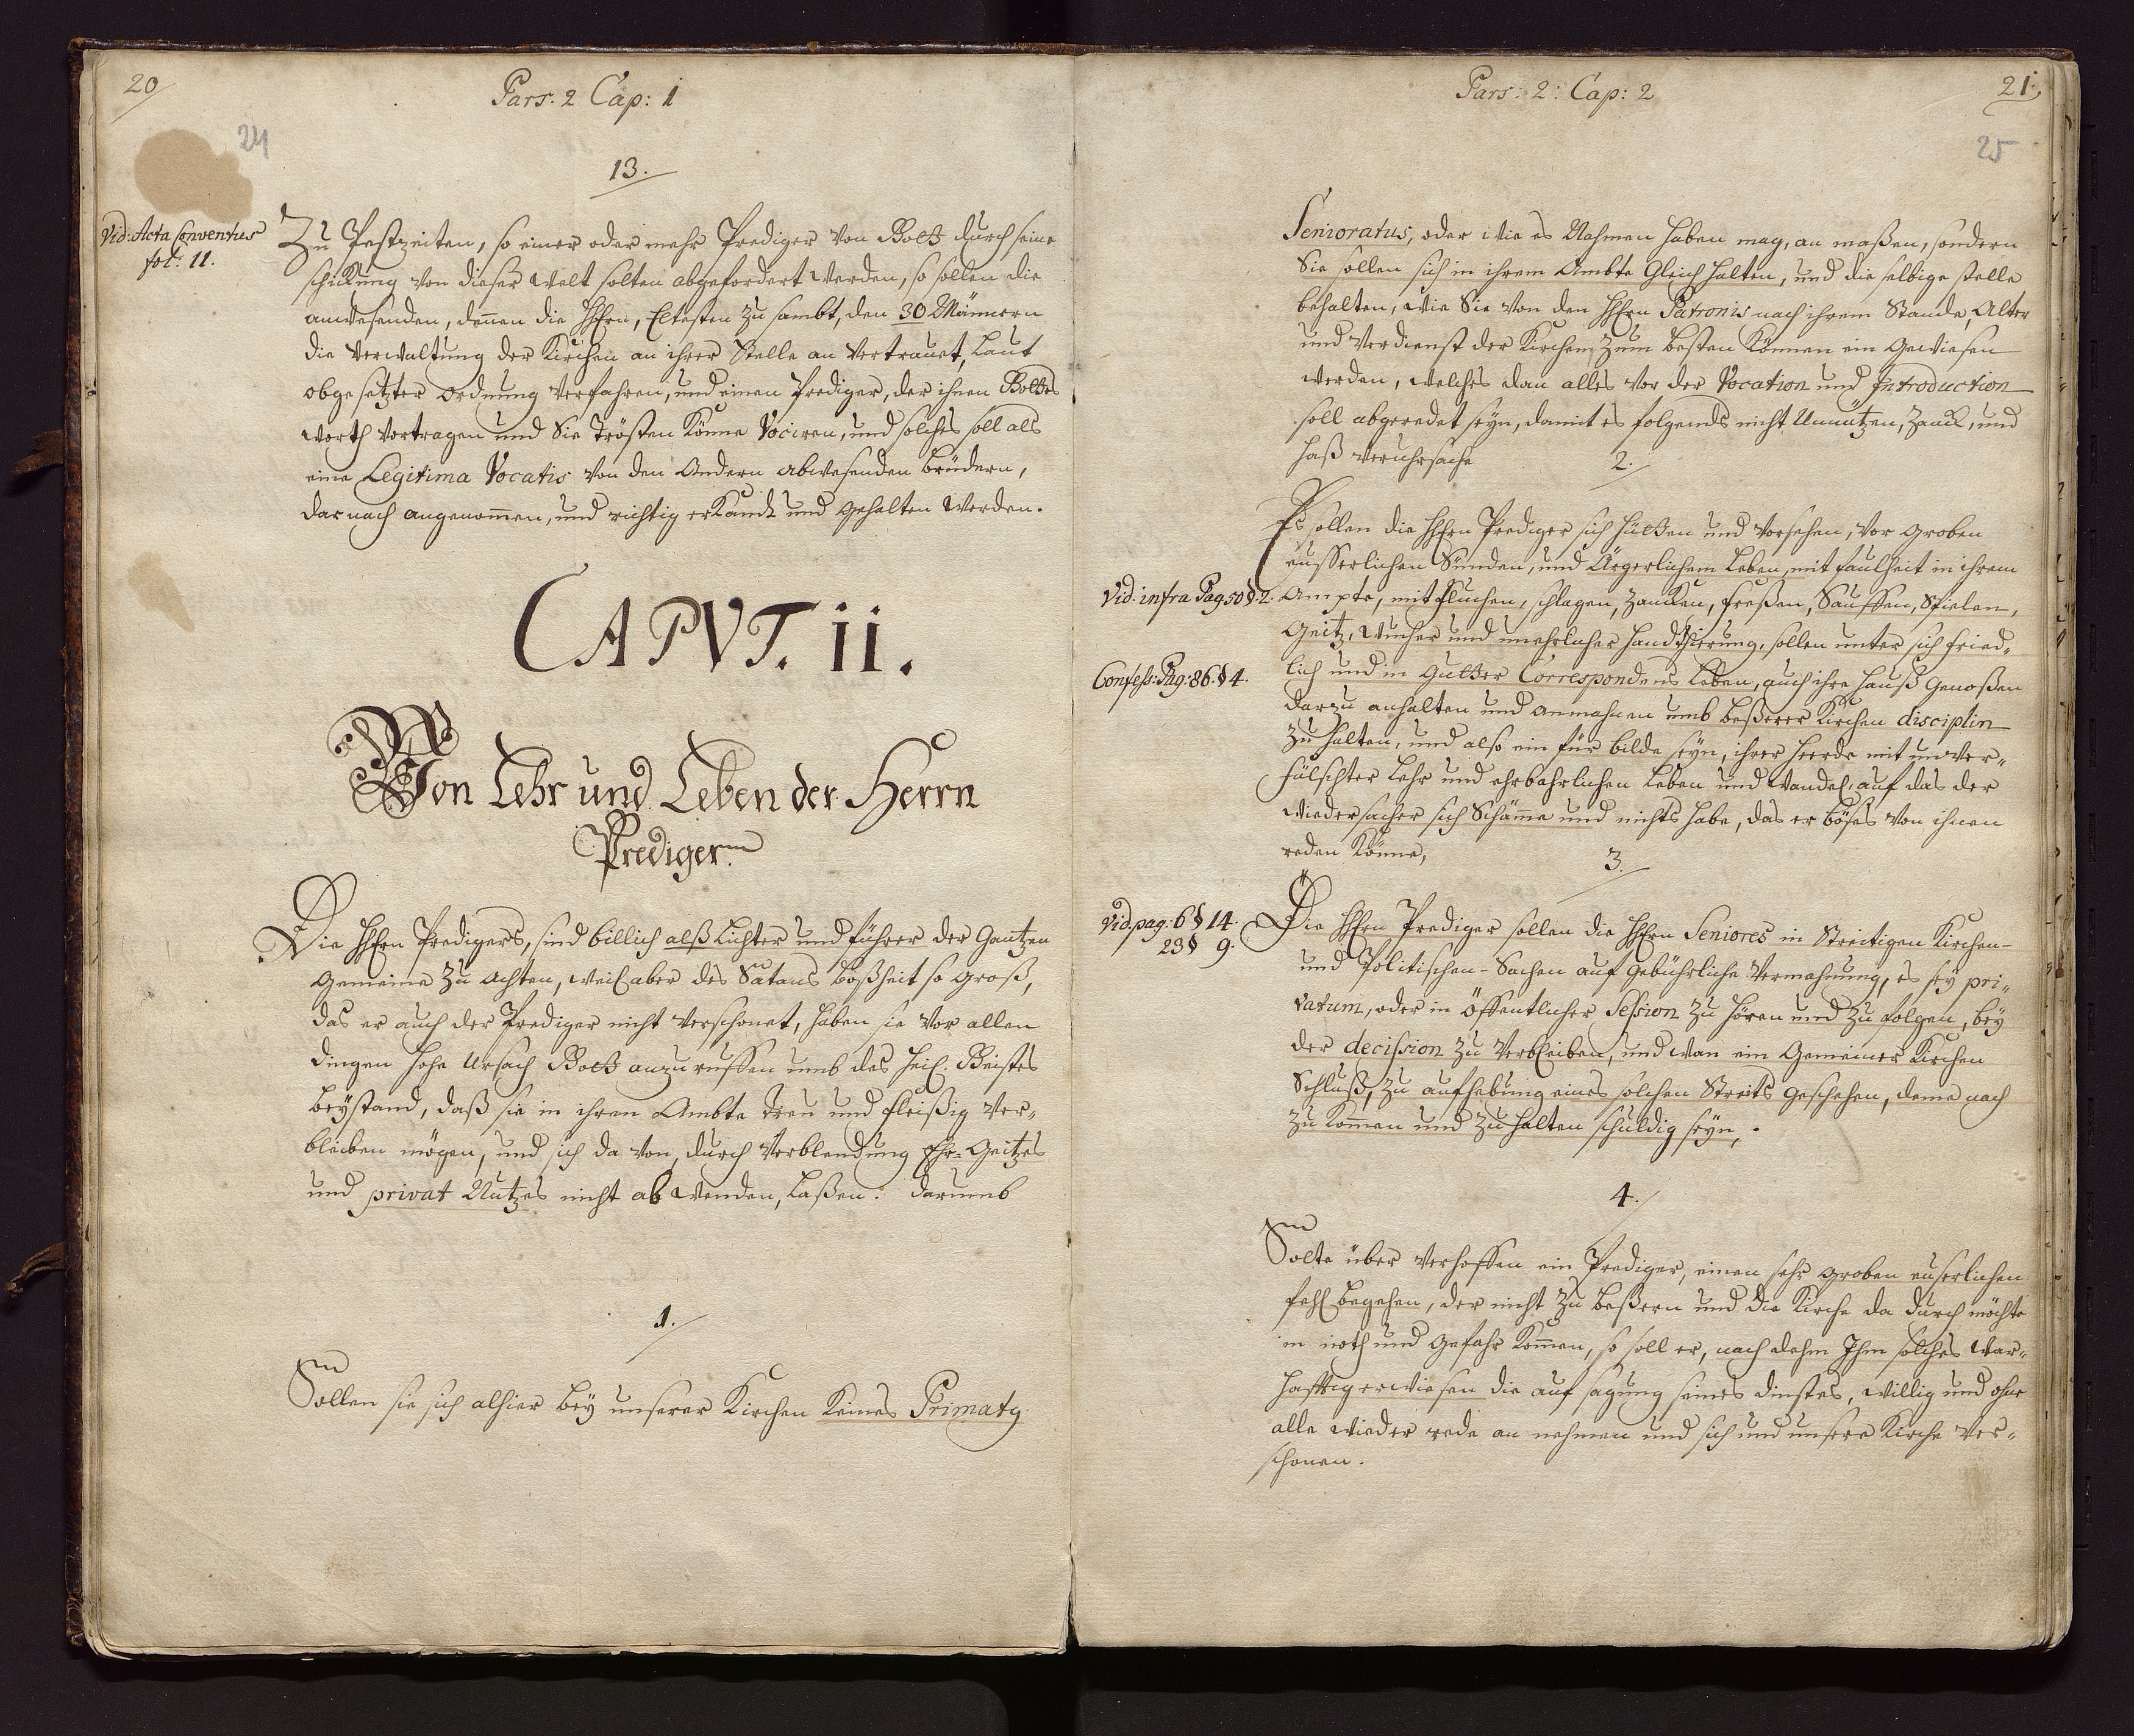 20
Pars: 2 Cap: 1
24
13.
Vid: Acta Conventus
fol: 11.
Zu Pestzeiten, so einer oder mehr Prediger von Gott durch seine
schickung von dieser Welt solten abgefordert werden, so sollen die
anwesenden, denen die HhErn, Eltesten zu sambt, den 30 Männern
die Verwaltung der Kirchen an ihrer Stelle an vertrauet, Laut
obgesetzter Ordnung verfahren, und einen Prediger, der ihnen Gottes
worth vortragen und Sie Trösten Könne Vociren, und solches soll als
eine Legitima Vocatis von den Andern abwesenden brüdern,
darnach angenommen, und richtig erkandt und gehalten werden.
CAPVT. ii.
Von Lehr und Leben der Herrn
Prediger.
Die HhErn Predigers, sind billich alß Lichter und führer der Gantzen
Gemeine zu achten, weil aber des Satans boßheit so groß,
das er auch der Prediger nicht verschonet, haben sie vor allen
dingen hohe Ursach Gott anzuruffen umb des Heil. Geistes
beystand, daß sie in ihrem Ambte treu und fleißig ver-
bleiben mögen, und sich da von, durch Verblendung Ehr-Geitzes
und privat Nutzes nicht ab wenden, laßen. darumb
1.
Sollen sie sich alhier bey unserer Kirchen Keines Primaty
Pars: 2: Cap: 2
21.
25
Senioratus, oder wie es Nahmen haben mag, an maßen, sondern
Sie sollen sich in ihrem Ambte Gleich halten, und die selbige stelle
behalten, wie Sie von den HhErn Patronis nach ihrem Stande, Alter
und Verdienst der Kirchen zum besten Können ein gewiesen
werden, welches dan alles vor der Vocation und Introduction
soll abgeredet seyn, damit es folgends nicht Unnützen, Zanck, und
haß veruhrsache
2.
Es sollen die HhErn Prediger sich hütten und vorsehen, vor groben
eusserlichen Sünden, und Ärgerlichem Leben, mit faulheit in ihrem
Vid: infra Pag 50 §. 2.
Ampte, mit fluchen, schlagen, zancken, freßen, Sauffen, Spielen,
Geitz, Wucher und unehrlicher handthierung, sollen unter sich fried-
Confess: Pag: 86. § 4.
lich und in gutter Correspondens Leben, auch ihre hauß Genoßen
darzu anhalten und anmahnen umb beßerer Kirchen disciplin
zu halten, und also ein für bilde seyn, ihrer heerde mit unver-
fälschter Lehr und ehrbahrlichen Leben und Wandel, auf das der
wiedersacher sich Schämme und nichts habe, das er böses von ihnen
reden Könne,
3.
Vid. pag: 6 § 14.
23 § 9.
Die HhErn Prediger sollen die HhErn Seniores in Streitigen Kirchen-
und Politischen-Sachen auf gebührliche Vermahnung, es sey pri-
vatum, oder in öffentlicher Session zu hören und zu folgen, bey
der decission zu verbleiben, und wan ein Gemeiner Kirchen
Schluß, zu aufhebung eines solchen Streits geschehen, deme nach
zu Kommen und zu halten schuldig seyn,
4.
Solte über verhoffen ein Prediger, einen sehr groben euserlichen
fehl begehen, der nicht zu beßern und die Kirche da durch möchte
in noth und gefahr Kommen, so soll er, nach dehm Ihm solches war-
hafftig erwiesen die auf sagung seines dinstes, willig und ohne
alle wieder rede an nehmen und sich und unsere Kirche ver-
schonen.